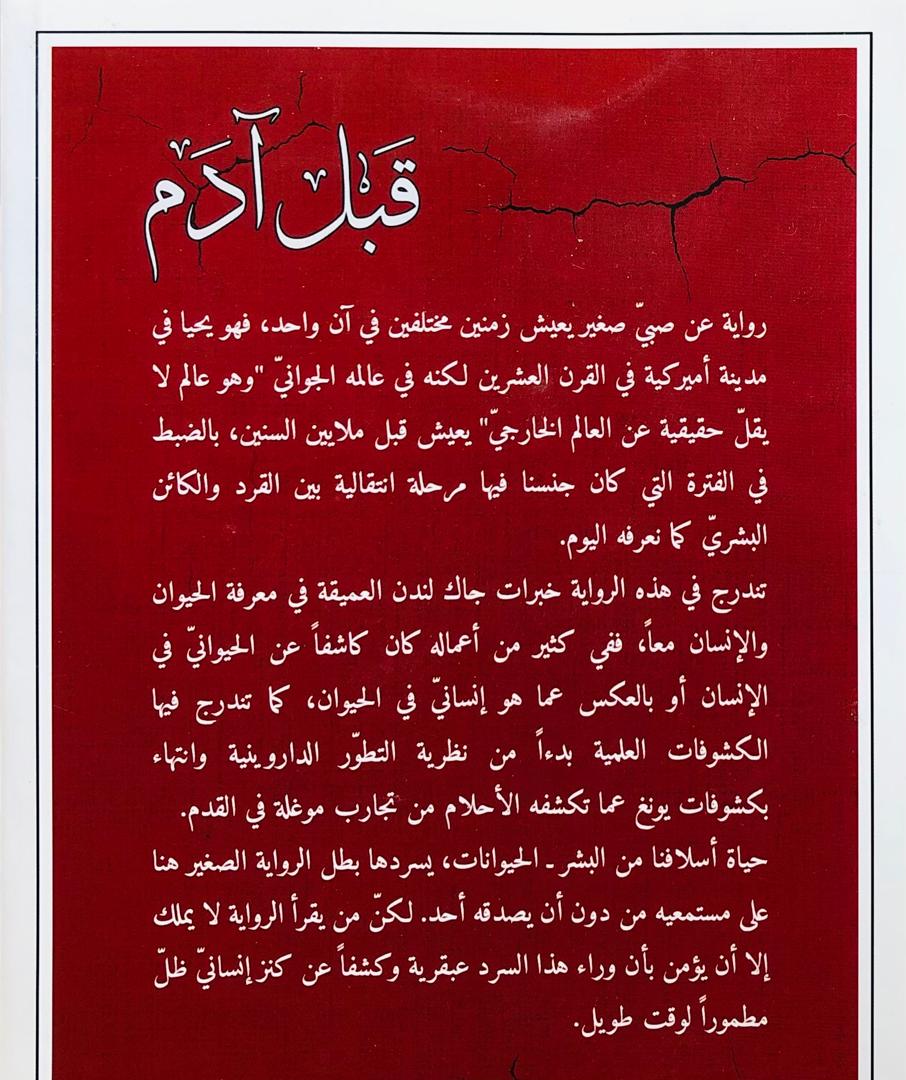 قبل آدم
رواية عن صبيّ صغير يعيش زمنين مختلفين في آن واحد، فهو يحيا في
مدينة أميركية في القرن العشرين لكنه في عالمه الجوانيّ "وهو عالم لا
يقلّ حقيقية عن العالم الخارجيّ" يعيش قبل ملايين السنين، بالضبط
في الفترة التي كان جنسنا فيها مرحلة انتقالية بين القرد والكائن
البشريّ كما نعرفه اليوم.
تندرج في هذه الرواية خبرات جاك لندن العميقة في معرفة الحيوان
والإنسان معاً، ففي كثير من أعماله كان كاشفاً عن الحيوانيّ في
الإنسان أو بالعكس عما هو إنسانيّ في الحيوان، كما تندرج فيها
الكشوفات العلمية بدءاً من نظرية التطوّر الداروينية وانتهاء
بكشوفات يونغ عما تكشفه الأحلام من تجارب موغلة في القدم.
حياة أسلافنا من البشر ـ الحيوانات، يسردها بطل الرواية الصغير هنا
على مستمعيه من دون أن يصدقه أحد. لكنّ من يقرأ الرواية لا يملك
إلا أن يؤمن بأن وراء هذا السرد عبقرية وكشفاً عن كنز إنسانيّ ظلّ
مطموراً لوقت طويل.